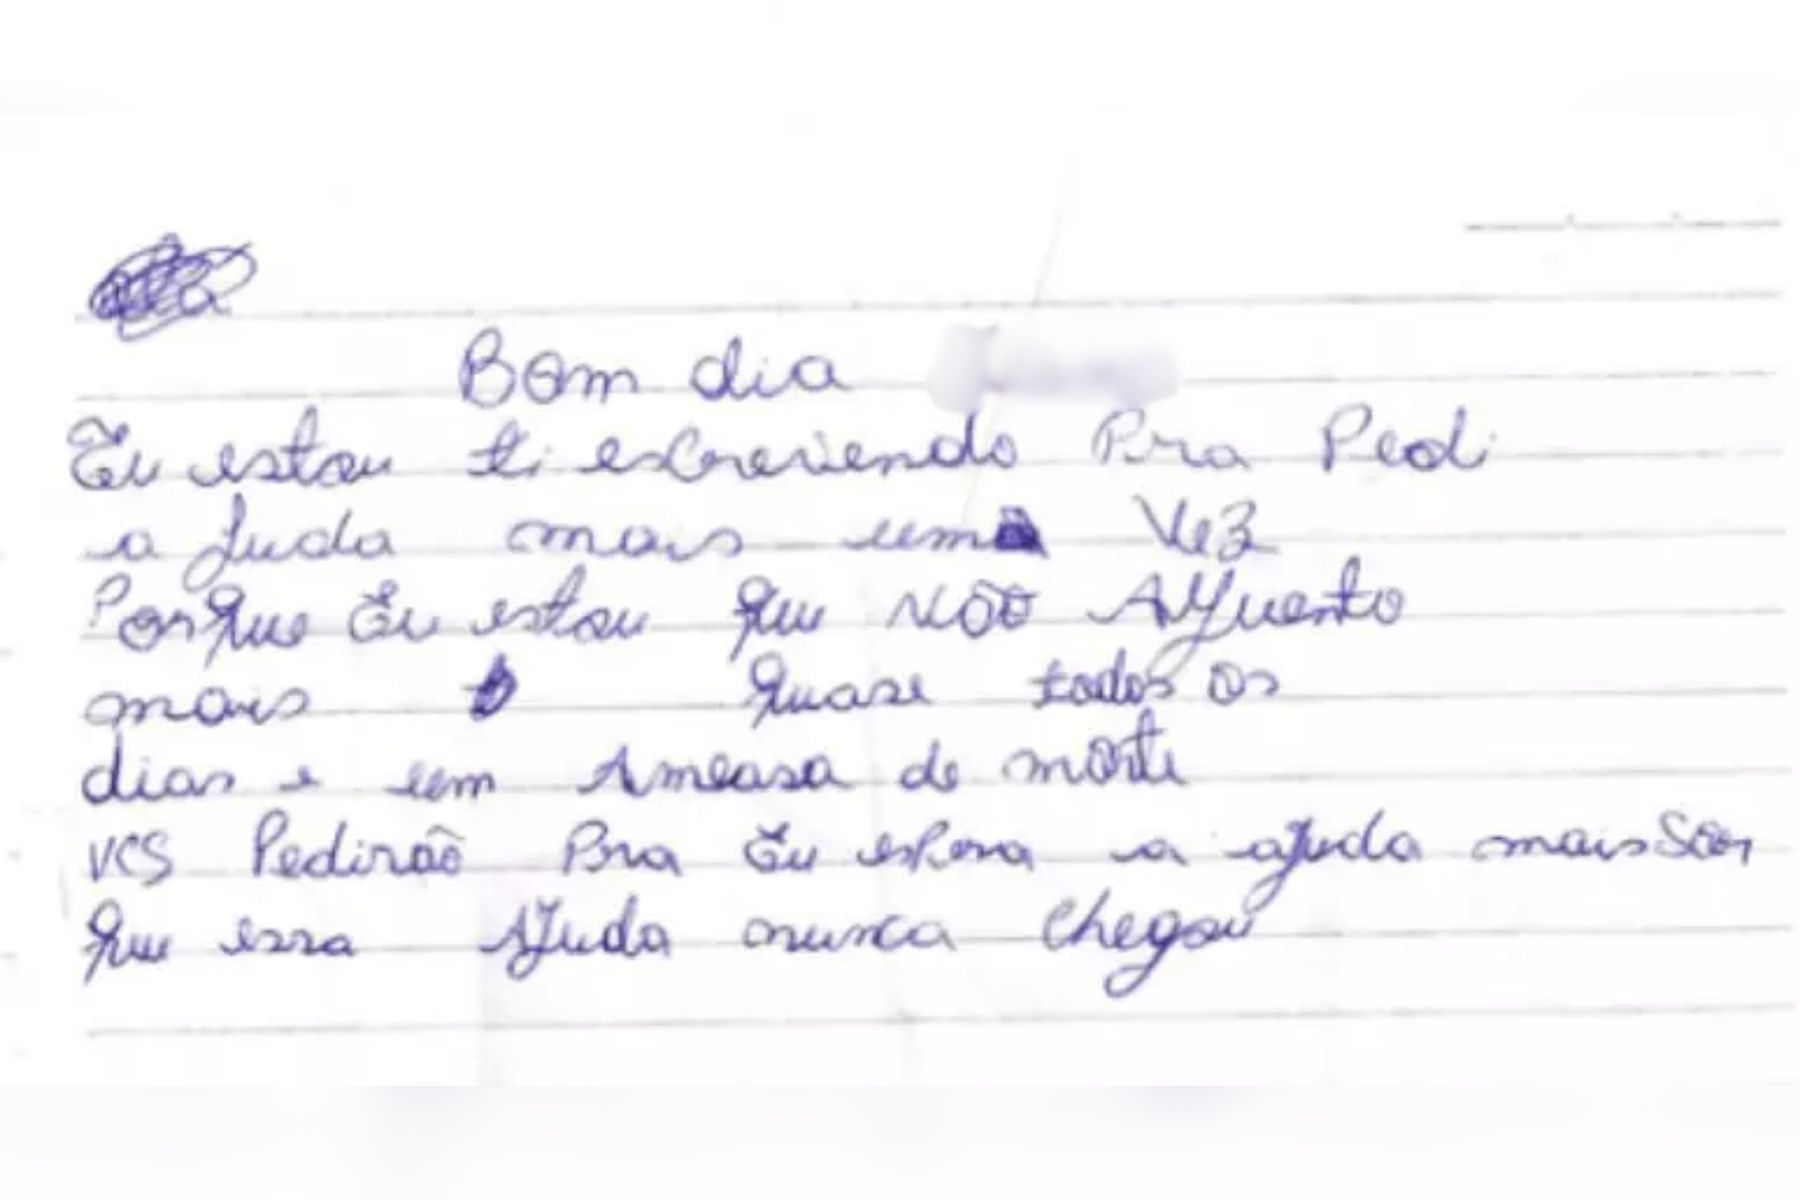 Bom dia
Eu estou ti escrevendo Pra Pedi
a Juda mais uma Vez
Porque Eu estou que NÃO AgUento
mais quase todos os
dias e um Ameasa de morte
VCS Pedirão Pra Eu espera a ajuda mais
que essa AJuda nunca chegou